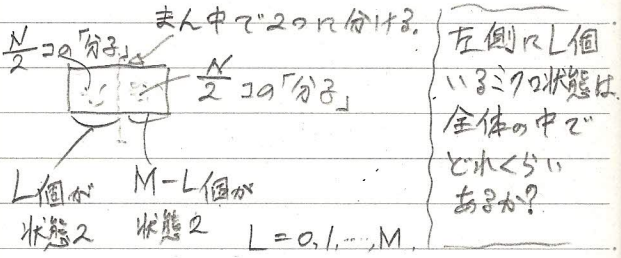 まん中で2つに分ける.
N/2 コの「分子」
N/2 コの「分子」
L個が
状態2
M-L個が
状態2
L=0,1,…,M.
左側にL個
いるミクロ状態は
全体の中で
どれくらい
あるか?